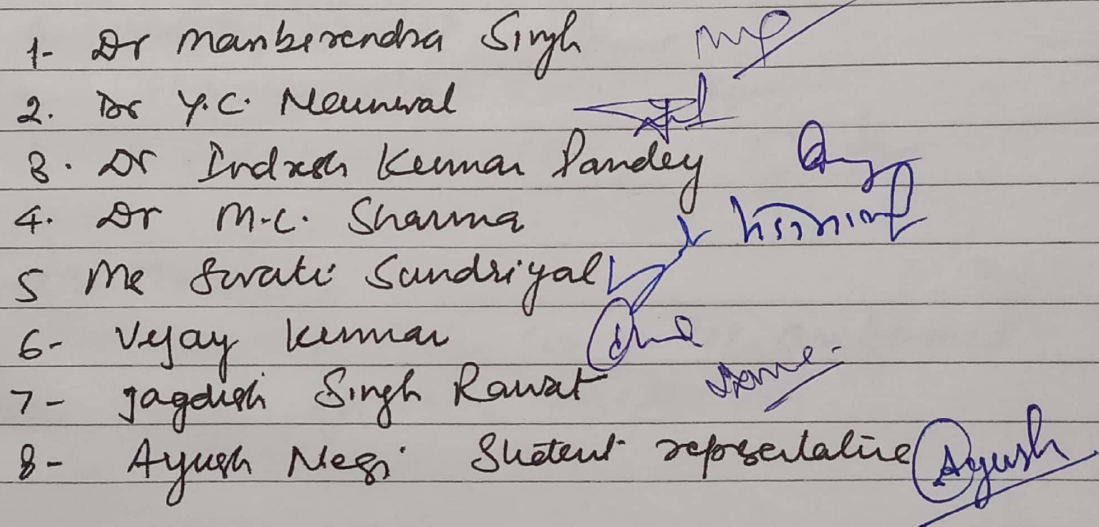 1- Dr Manberendra Singh
2. Dr Y.C. Nainwal
3. Dr Indresh Kumar Pandey
4. Dr M.C. Sharma
5 Ms Swati Sundriyal
6- Vijay Kumar
7- Jagdish Singh Rawat
8- Ayush Negi Student representative Ayush